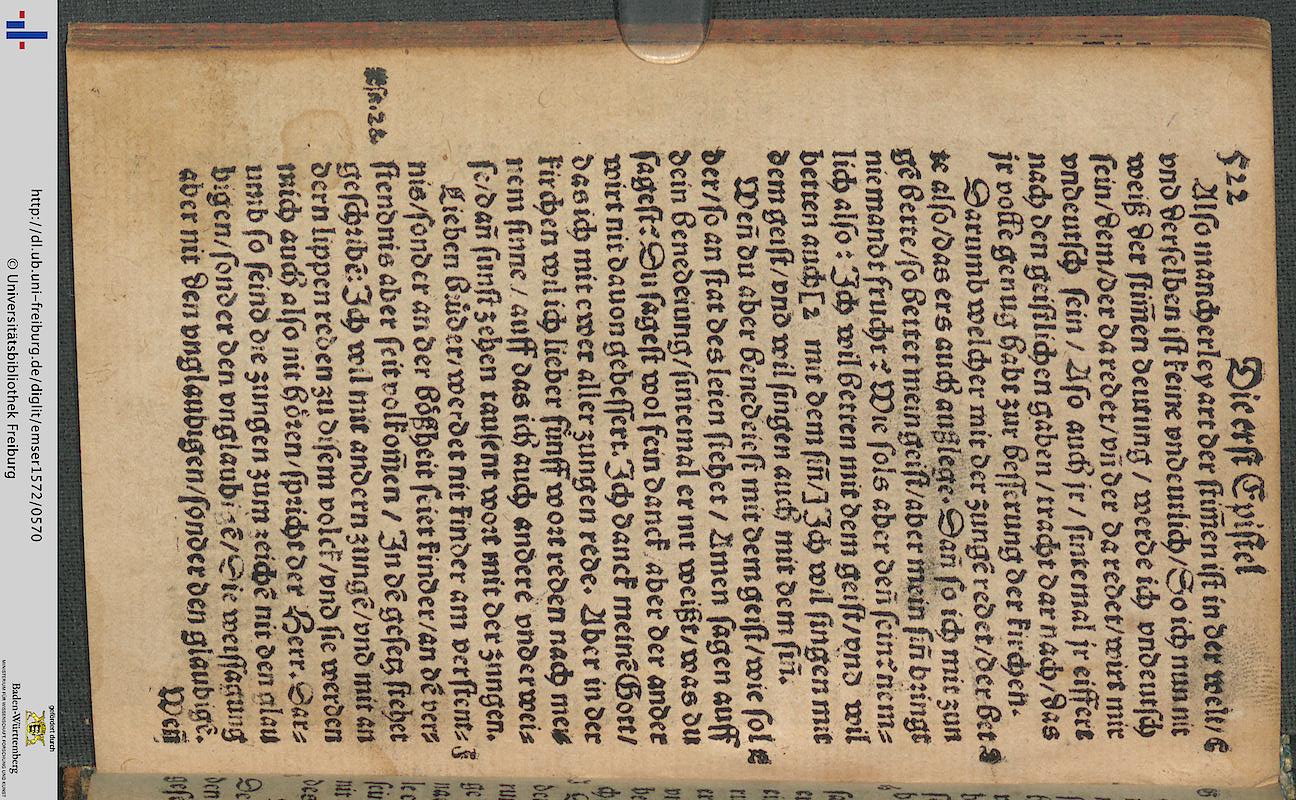 522
Die erst Epistel
Also mancherley art der stim̃en ist in der welt/
vnd derselben ist keine vndeutlich/ So ich nun nit
weiß der stim̃en deutung/ werde ich vndeutsch
sein/ dem/ der da redet/ vñ der da redet/ wirt mir
vndeutsch sein/ Also auch jr/ sintemal jr eiffert
nach den geistlichen gaben/ tracht darnach/ das
jr volle genug habt zur besserung der kirchen.
Darumb welcher mit der zunge redet/ der bet
te also/ das ers auch außlege. Dañ so ich mit zun
gẽ bette/ so bettet mein geist/ aber mein siñ bringt
niemandt frucht: Wie sols aber deñ sein? nem-
lich also: Ich wil betten mit dem geist/ vnd wil
betten auch [ mit dem siñ/] Ich wil singen mit
dem geist/ vnd wil singen auch mit dem siñ.
Weñ du aber benedeiest mit dem geist/ wie sol
der/ so an stat des leien stehet/ Amen sagen auff
dein benedeiung/ sintemal er nit weißt/ was du
sagest: Du sagest wol fein danck/ aber der ander
wirt nit dauon gebessert. Ich danck meinẽ Gott/
das ich mit ewer aller zungen rede. Aber in der
kirchen wil ich lieber fünff wort reden nach mi
nem sinne/ auff das ich auch andere vnderwei-
se/ dañ sunst zehen tausent wort mit der zungen.
Lieben Brüder/ werdet nit kinder am verstent-
nis/ sonder an der boßheit seiet kinder/ an dẽ ver-
stendnis aber seit volkom̃en/ In dẽ gesetz stehet
geschribẽ: Ich wil mit andern zungẽ/ vnd mit an
Esa. 28.
dern lippen reden zu disem volck/ vnd sie werden
mich auch also nit hören/ spricht der Herr. Dar-
umb so seind die zungen zum zeichẽ nit den glau
bigen/ sonder den vnglaubigẽ/ Die weissagung
aber nit den vnglaubigen/ sonder den glaubigẽ.
Weñ
http://dl.ub.uni-freiburg.de/diglit/emser1572/0570
© Universitätsbibliothek Freiburg
gefördert durch
Baden-Württemberg
MINISTERIUM FÜR WISSENSCHAFT, FORSCHUNG UND KUNST